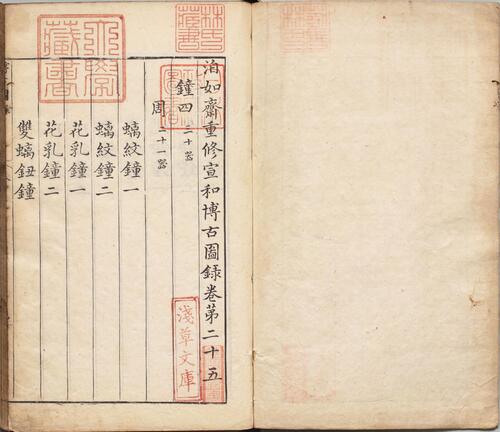 泊如齋重修宣和博古圖錄卷第二十五
鐘四 二十器
周 二十一器
螭紋鐘一
螭紋鐘二
花乳鐘一
花乳鐘二
雙螭鈕鐘
林氏藏書
大學藏書
淺草文庫